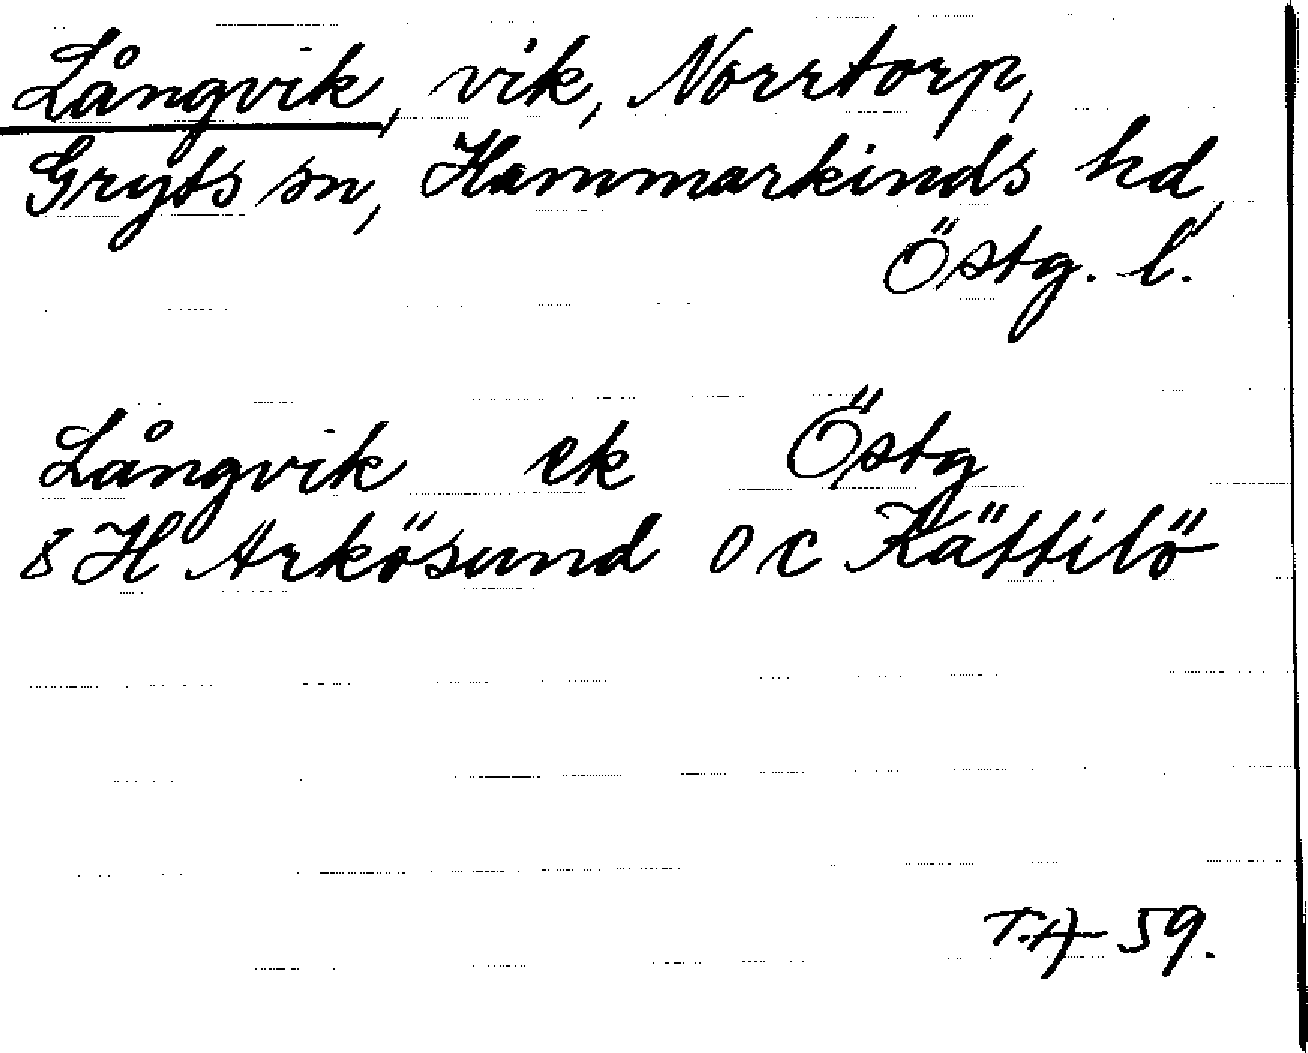 Långvik, vik, Norrtorp,
Gryts sn, Hammarkinds hd,
Östg. l.
Långvik ek Östg
8 H Arkösund 0 C Kättilö
T.A 59.